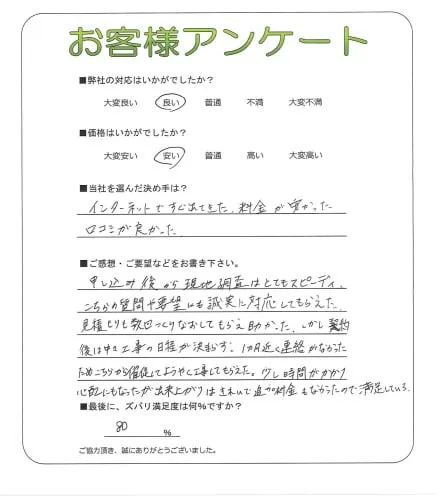 お客様アンケート
■弊社の対応はいかがでしたか?
大変良い 良い 普通 不満 大変不満
■価格はいかがでしたか?
大変安い 安い 普通 高い 大変高い
■当社を選んだ決め手は?
インターネットですぐ出てきた、料金が安かった
口コミが良かった
■ご感想・ご要望などをお書き下さい。
申し込み後から現地調査はとてもスピーディ、
こちらの質問や要望にも誠実に対応してもらえた
見積もりも数回つくりなおしてもらえ助かった、しかし契約
後は中々工事の日程が決まらず、1カ月近く連絡がなかった
ためこちらから催促してようやく工事してもらえた。少し時間がかかり
心配にもなったが出来上がりはきれいで追加料金もなかったので満足している。
■最後に、ズバリ満足度は何%ですか?
80 %
ご協力頂き、誠にありがとうございました。